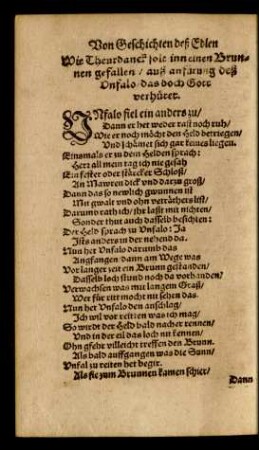 Von Geschichten deß Edlen
Wie Theurdanck solt inn einen Brun-
nen gefallen / auß anstifftung deß
Vnfalo / das doch Gott
verhütet.
VNfalo fiel ein anders zu/
Dann er het weder rast noch ruh/
Wie er noch möcht den Held betriegen/
Vnd schämet sich gar keines liegen.
Einsmals er zu dem Helden sprach:
Herr all mein tag ich nie gesah
Ein fester oder stärcker Schloß/
An Mawren dick vnd darzu groß/
Dann das so newlich gwunnen ist
Mit gwalt vnd ohn verräthers list/
Darumb rath ich/ ihr lasst mit nichten/
Sonder thut auch dasselb besichten:
Der Held sprach zu Vnfalo: Ja
Ists anders in der nehend da.
Nun het Vnfalo darumb das
Angfangen dann am Wege was
Vor langer zeit ein Brunn gestanden/
Dasselb loch stund noch da vorhanden/
Verwachsen was mit langem Graß/
Wer für ritt mocht nit sehen das.
Nun het Vnfalo den anschlag/
Ich wil vor reitten was ich mag/
So wirdt der Held bald nacher rennen/
Vnd in der eil das loch nit kennen/
Ohn gfehr villeicht treffen den Brunn.
Als bald auffgangen was die Sunn/
Vnfal zu reiten het begir.
Als sie zum Brunnen kamen schier/
Dann